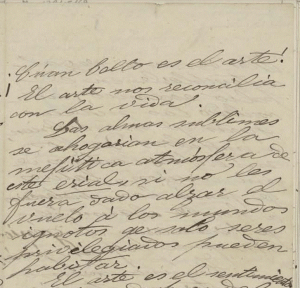 ¡Cúan bello es el arte!
El arte nos reconcilia
con la vida.
Las almas sublimes
se ahogarian en la
mefitica atmósfera de
este erial, si no les
fuera dado alzar el
vuelo á los mundos
ignotos qe solo seres
privilegiados pueden
habitar.
El arte es el sentimiento